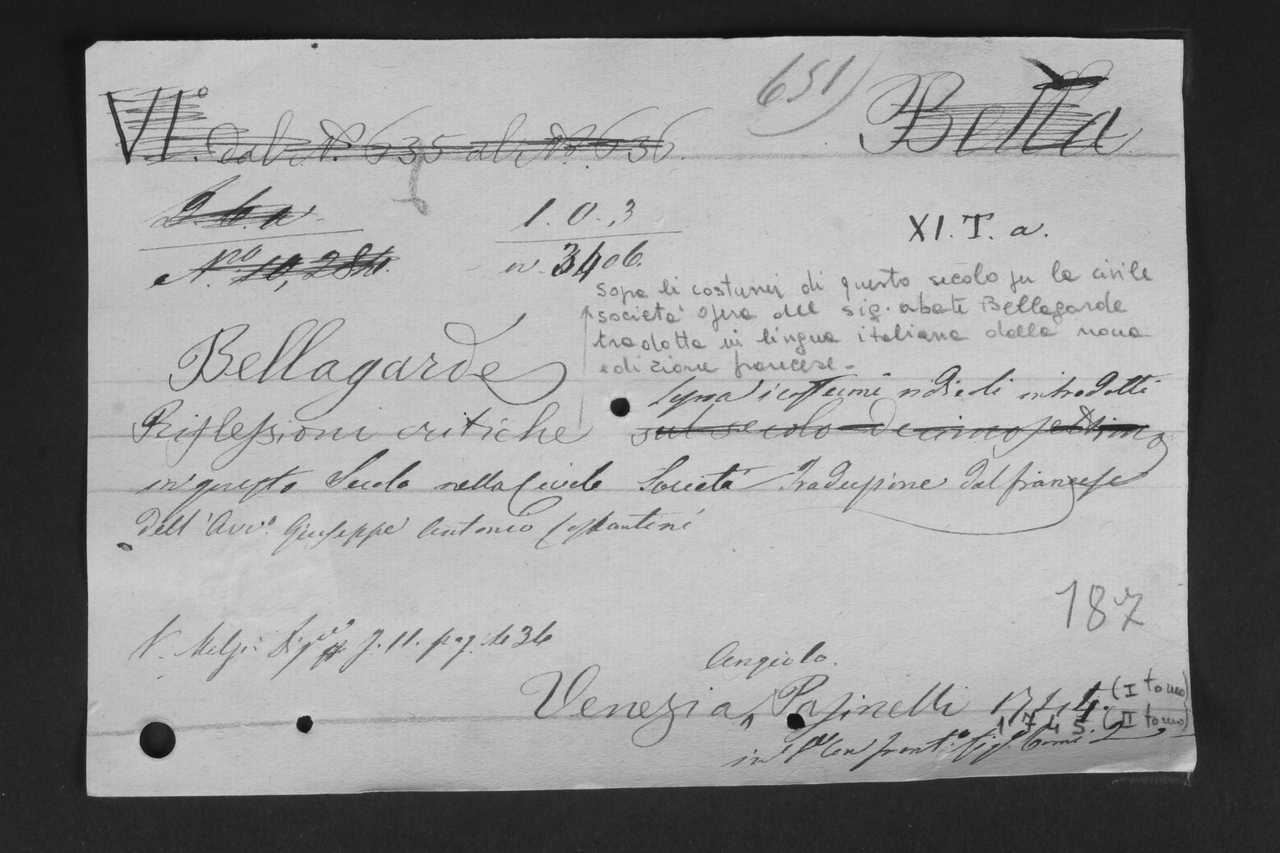 651)
VI° dal N° 635 al N° 636. Bella
2.6.a 1.0.3 XI.T.a.
N.ro 10,284. n. 3406.
Sopra li costumi di questo secolo per la civile
società opera del sig. abate Bellagarde
tradotta in lingua italiana dalla nona
edizione francese.
Bellagarde
Sopra i costumi introdotti
Riflessioni critiche sul secolo decimosettimo
in questo Secolo nella Civile Società Traduzione dal francese
dell'Avv.° Giuseppe Antonio Costantini
187
V. Melzi pag. 36
Angiolo.
Venezia, Pasinelli 1744. (I tomo)
1745. (II tomo)
in 8° con front.° fig.° Tomi 2